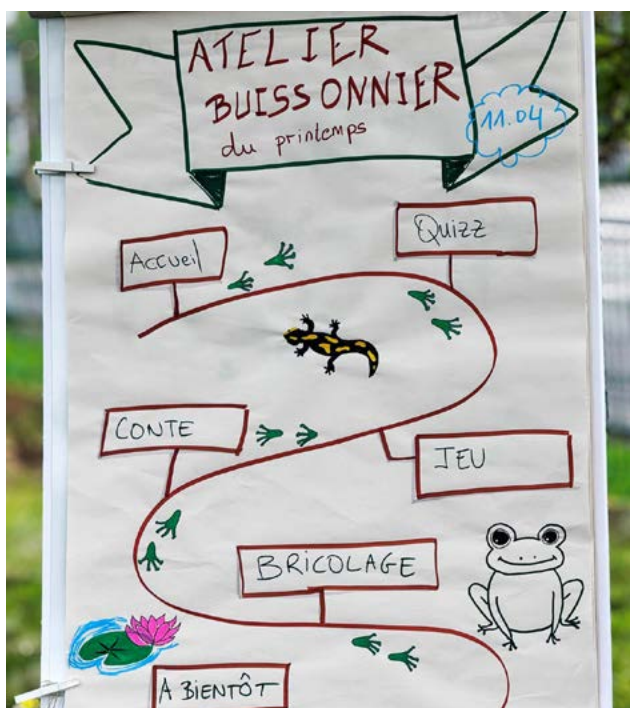 ATELIER
BUISSONNIER
du printemps
11.04
Accueil
Quizz
JEU
CONTE
BRICOLAGE
A BIENTÔT